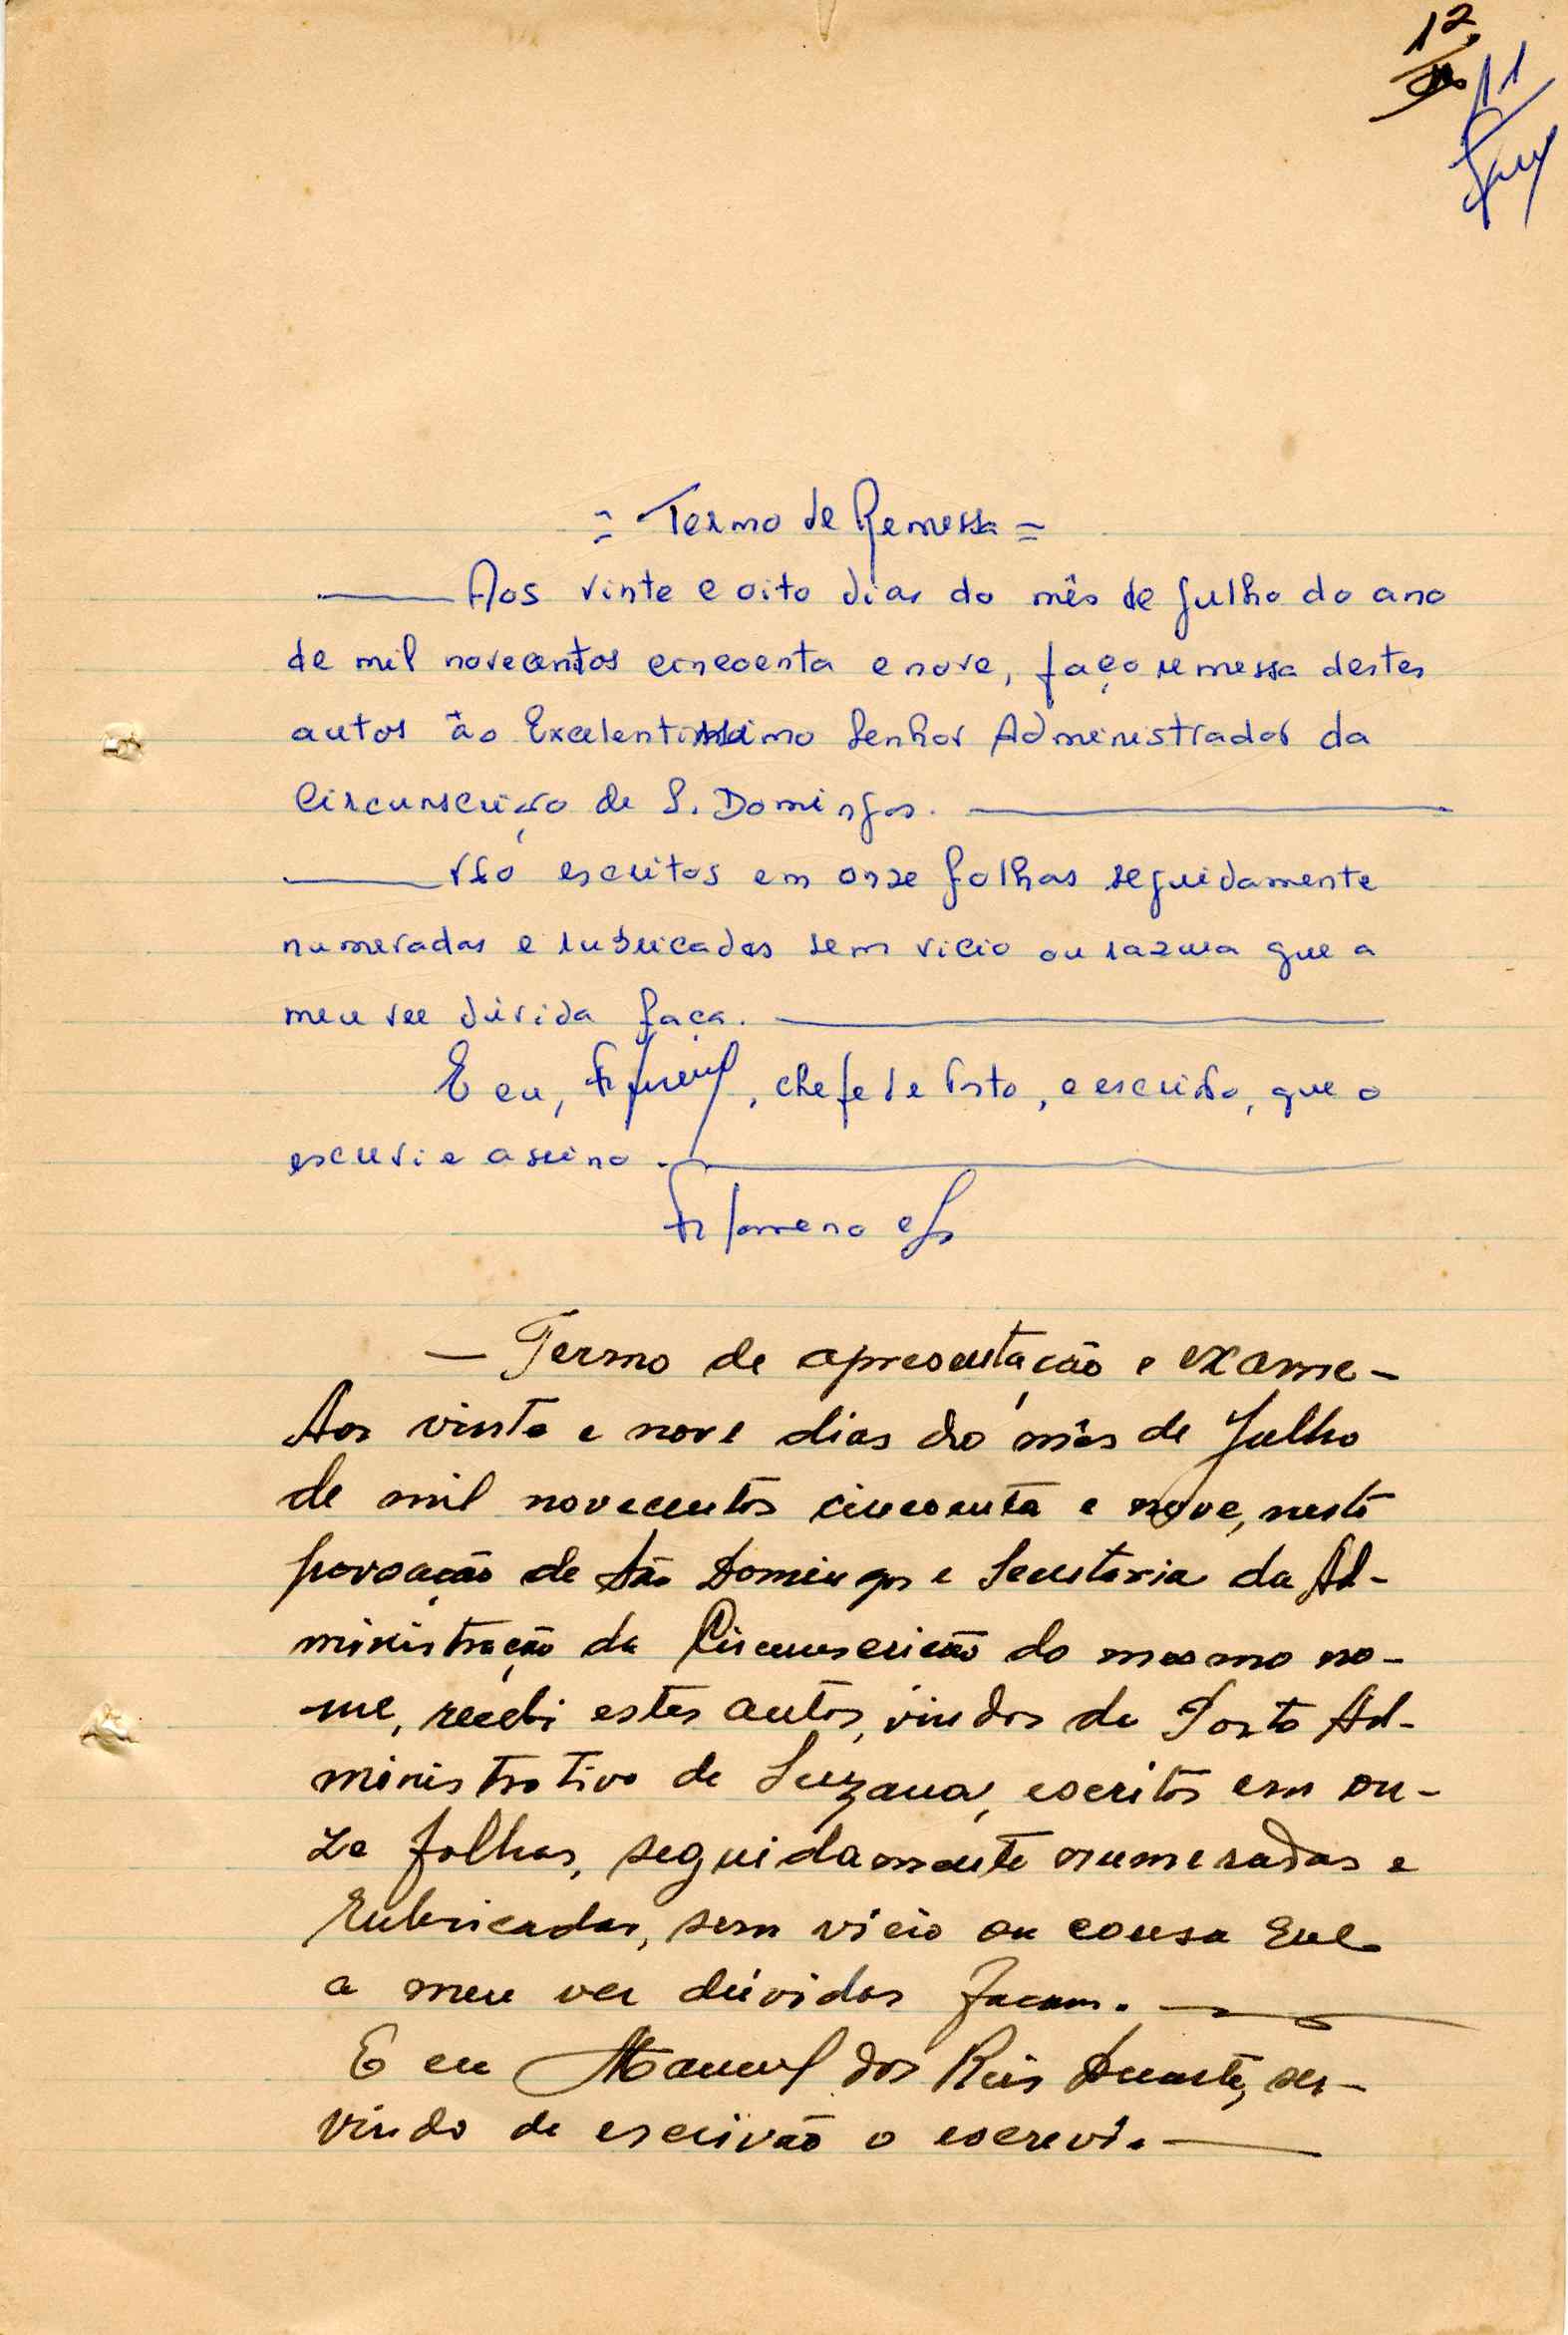 12
11
= Termo de Remessa =
Aos vinte e oito dias do mês de Julho do ano
de mil novecentos cincoenta e nove, faço remessa destes
autos ao Excelentissimo Senhor Administrador da
Circunscrição de S. Domingos.
Vão escritos em onze folhas seguidamente
numeradas e rubricadas sem vicio ou razura que a
meu ver dúvida faça.
E eu, , chefe de Posto, e escrivão, que o
escrevi e assino.
— Termo de apresentação e exame —
Aos vinte e nove dias do mês de Julho
de mil novecentos cincoenta e nove, nesta
povoação de São Domingos e Secretaria da Ad-
ministração da Circunscrição do mesmo no-
me, recebi estes autos, vindos do Posto Ad-
ministrativo de Suzana, escritos em on-
ze folhas, seguidamente numeradas e
rubricadas, sem vicio ou cousa que
a meu ver dúvidas façam.
E eu Manuel dos Reis Duarte, ser-
vindo de escrivão o escrevi.